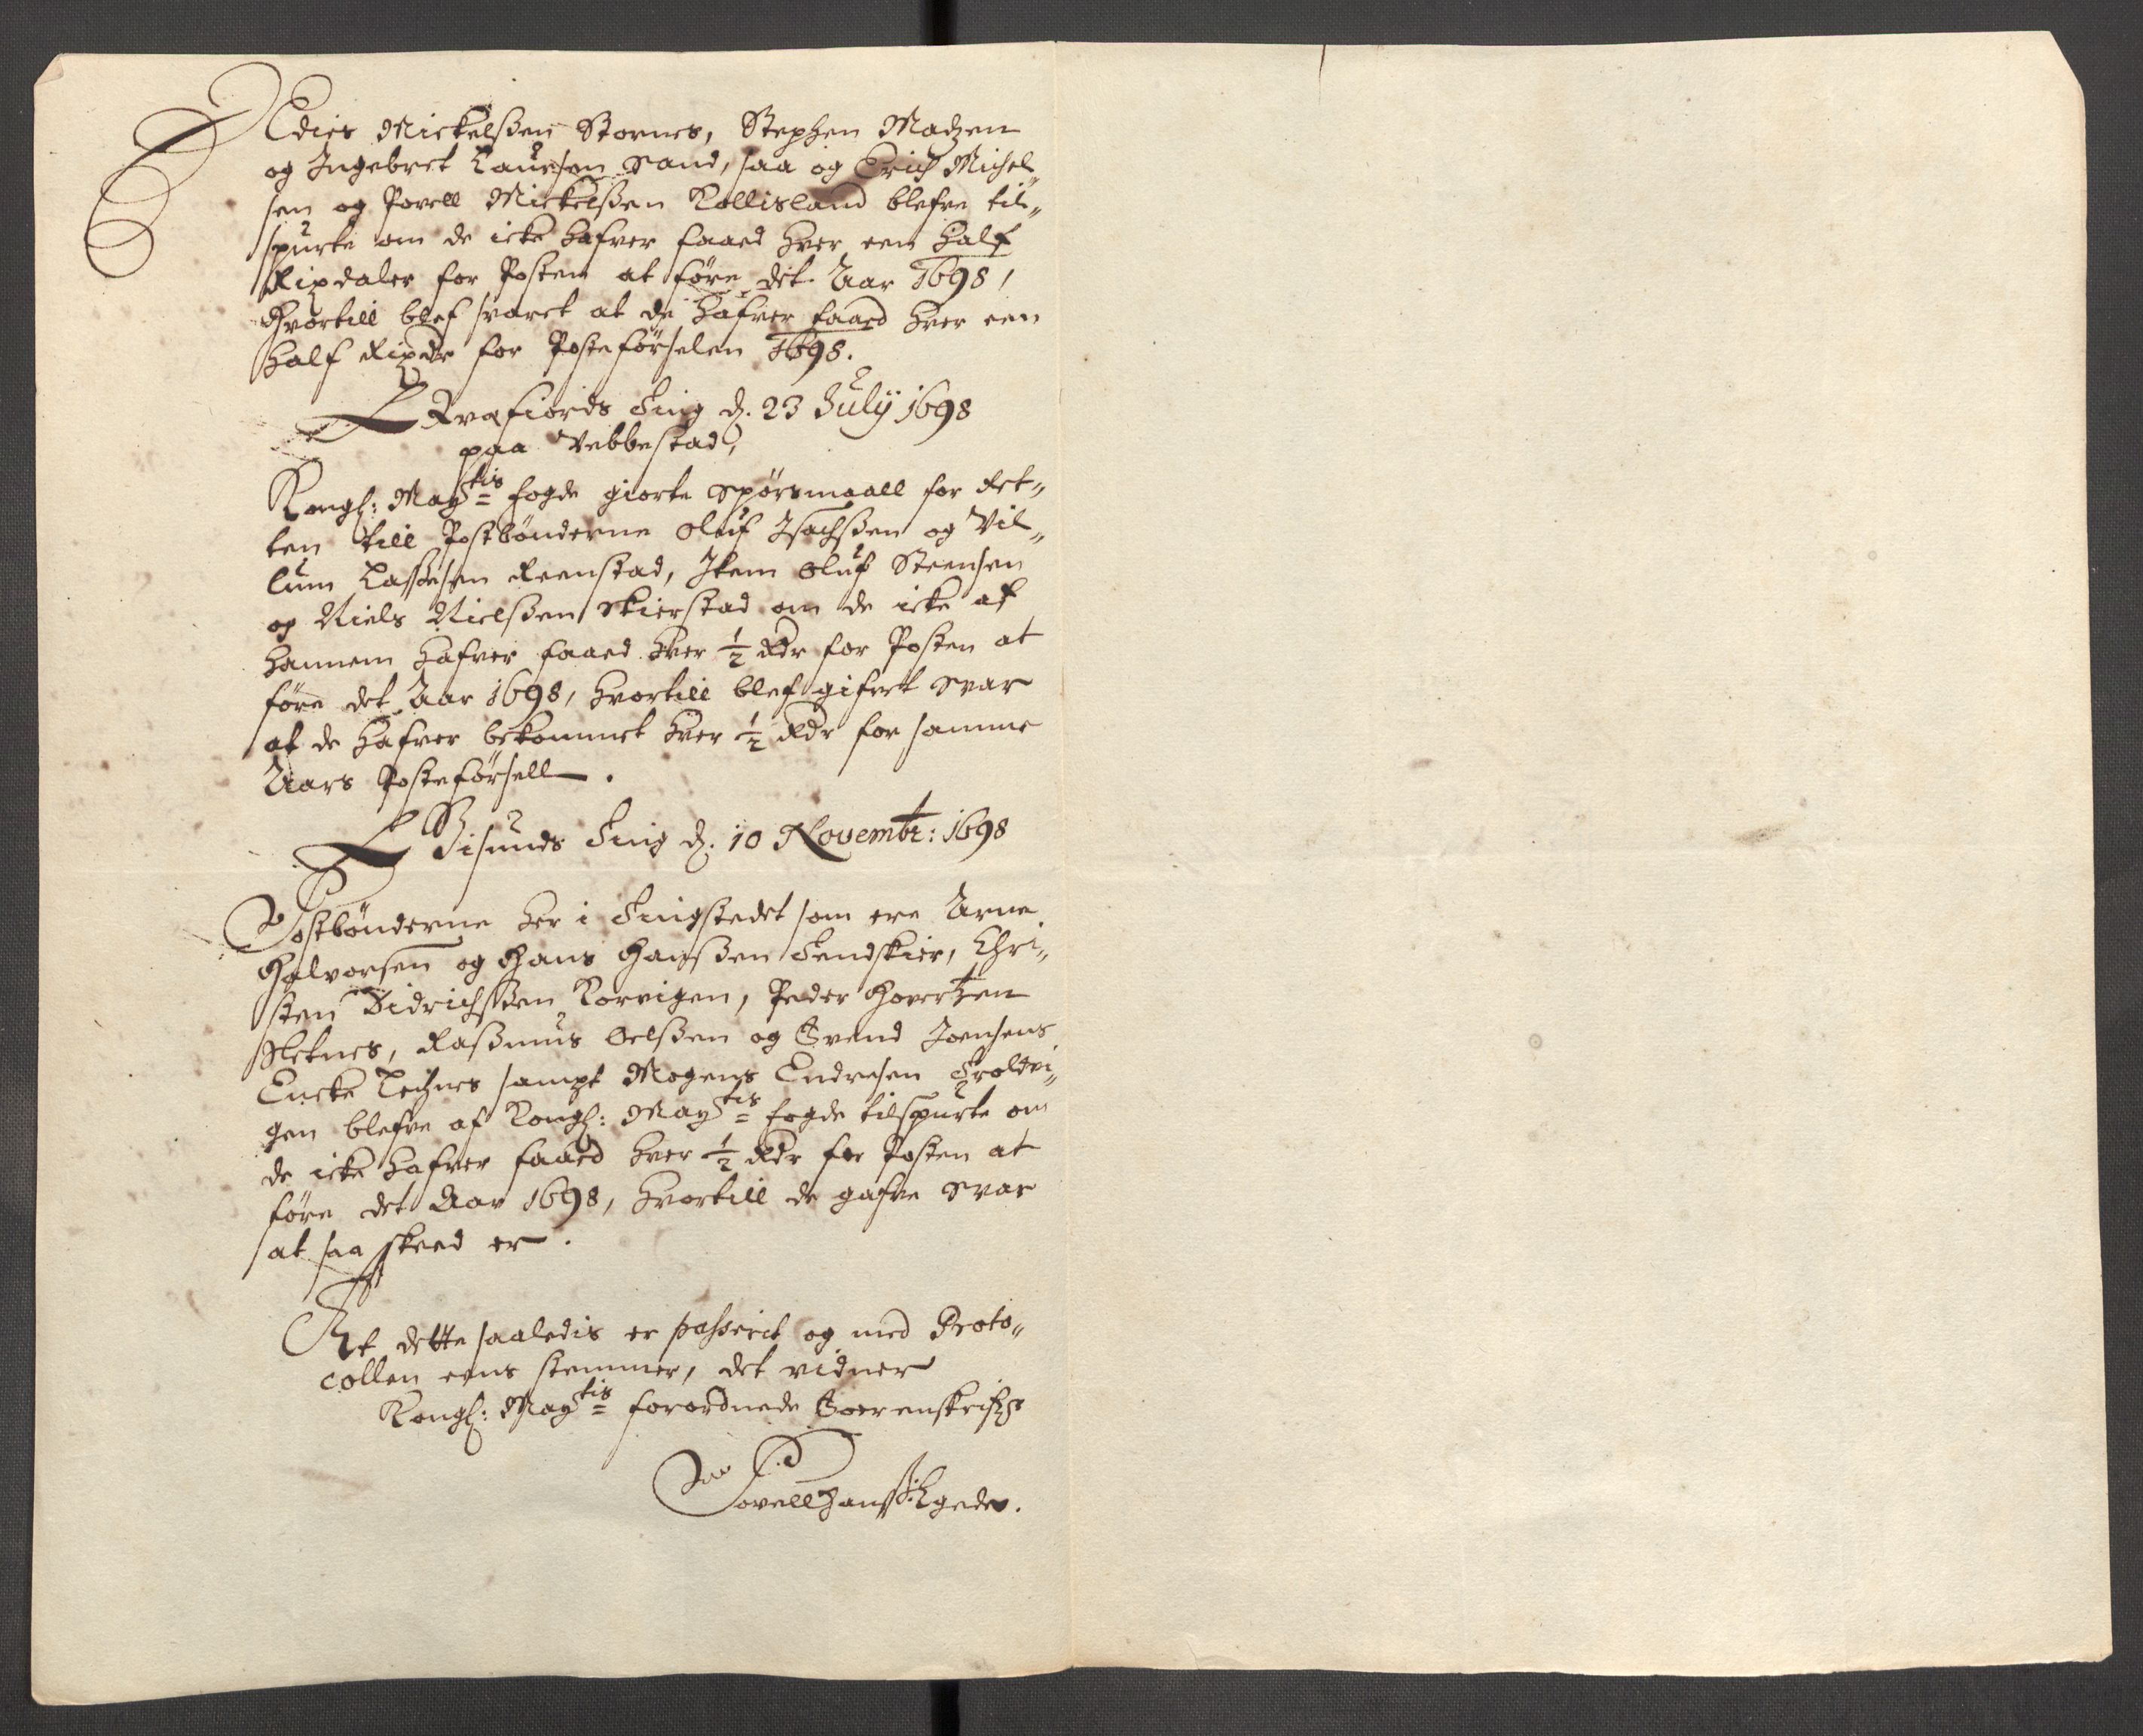 Edies Mickelßen Stornes, Stephen Madzen
og Ingebret Laursen Sand, saa og Erich Michel„
sen og Povell Mickelßen Rollisland blefve til„
spurte om de icke hafver faaed hver een half
Rixdaler for Posten at føre det Aar 1698,
Hvortill blef svaret at de hafver faaed hver een
half Rixdr for Posteførselen 1698.
Qvæfiords Ting d. 23 Julÿ 1698
paa Vebbestad,
Kongl: Maÿtis fogde giorte spørsmaall for Ret„
ten till Postbønderne Oluf Isachßen og Vil„
lum Lassesen Reenstad, Item Oluf Steensen
og Niels Nielßen Skierstad om de icke af
hannem hafver faaed hver ½ Rdr for Posten at
føre det Aar 1698, hvortill blef gifvet svar
at de hafver bekommet hver ½ Rdr for samme
Aars Posteførsell.
Gisunds Ting d. 10 Novembr: 1698
Postbønderne her i Tingstedet som ere Arne
Halvorsen og Hans Hanßen Tendskier, Chri„
sten Didrichßen Korvigen, Peder Hovertzen
Kletnes, Rasßmus Oelßen og Svend Joensens
Encke Leiknes sampt Mogens Endresen Troldvi„
gen blefve af Kongl: Maÿtis fogde tilspurte om
de icke hafver faaed hver ½ Rdr for Posten at
føre det Aar 1698, hvortill de gafve svar
at saa skeed er.
At dette saaledis er passerit og med Proto„
collen eens stemmer, det vidner
Kongl: Maÿtis forordnede Sorenskrifver
Povell Hanß: Egede.